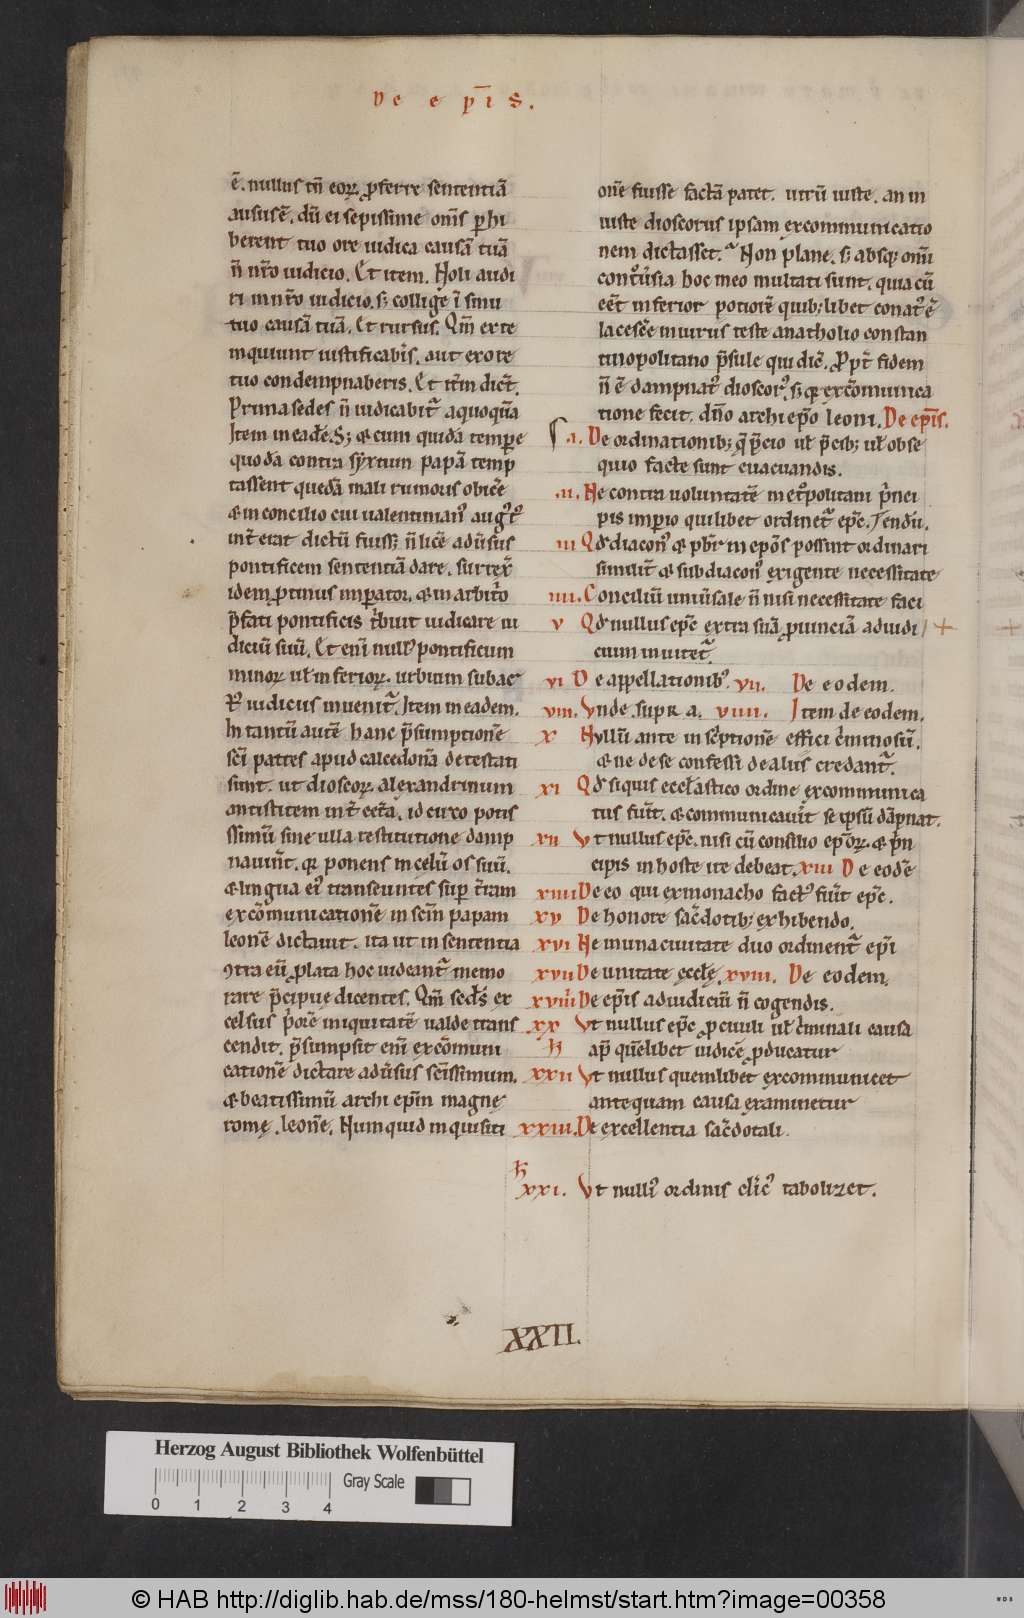 De ep̄is.
ē. nullus tn̄ eoꝝ ꝓferre sententiā
ausus ē. dū ei sepissime om̄s ꝑhi
berent tuo ore iudica causā tuā
n̄ nr̄o iudicio. Et item. Noli audi
ri in nr̄o iudicio. s; collige ī sinu
tuo causā tuā. Et rursus. Qm̄ ex te
inquiunt iustificab̄is. aut ex ore
tuo condempnaberis. Et it̄m dict̄.
Prima sedes n̄ iudicabit᷑ a quoquā
Item in ead̄e. S; & cum quidā tempore
quodā contra syxtum papā temp
tassent quedā mali rumoris obic̄e
& in concilio cui ualentinianꝰ augꝰtꝰ
int̄erat dictū fuiss; n̄ lic̄e adūsus
pontificem sententiā dare. surrex̄
idem ꝓtinus imꝑator. & in arbit̄o
p̄fati pontificis t̄buit iudicare iu
diciū suū. Et enī nullꝰ pontificum
minoꝝ uł inferioꝝ. urbium subac
iudicus inuenit᷑. Item in eadem.
In tantū autē hanc p̄sumptionē
sc̄i patres apud calcedonā detestati
sunt. ut dioscoꝝ alexandrinum
antistitem int̄ ecta. id circo potis
ssimū sine ulla restitutione damp
nauin̄t. qꝛ ponens in celū os suū.
& lingua eiꝰ transeuntes suꝑ t̄ram
excōmunicationē in sc̄m papam
leonē dictauit. ita ut in sententia
ꝯtra eū ꝓlata hoc uideant᷑ memo
rare p̄cipue dicentes. Qm̄ sed̄s ex
celsus p̄orē iniquitatē ualde trans
cendit. p̄sumpsit enī excōmuni
cationē dictare adūsus sc̄issimum.
& beatissimū archi ep̄m magnę
romę. leonē. Numquid inquisiti
onē fuisse factā patet. utrū iuste. an in
iuste dioscorus ipsam excommunicatio
nem dictasset. Non plane. s; absqꝫ om̄i
cont̄ouersia hoc meo multati sunt. quia cū
eēt inferior potiorē quib;libet conatꝰ ē
lacesc̄e iniuriis teste anatholio constan
tinopolitano p̄sule qui dic̄. Ꝓpt̄ fidem
n̄ ē dampnatꝰ dioscorꝰ. s; qꝛ excōmunica
tione fecit. dn̄o archi ep̄o leoni. De ep̄is.
.i. De ordinationib; q̄ p̄cio uł p̄cib; uł obse
quio facte sunt euacuandis.
.ii. Ne contra uoluntatē met̄politani p̄nci
pis imꝑio quilibet ordinet᷑ ep̄c.
iii Qd̄ diaconꝰ & pb̄r in ep̄os possint ordinari
similit̄ & subdiaconꝰ exigente necessitate
iiii. Conciliū uniūsale n̄ nisi necessitate faci
v Qd̄ nullus ep̄c extra suā ꝓuinciā ad iudi
cium inuitet᷑.
vi De appellationibꝰ. vii. De eodem.
viii. Unde supra. viiii. Item de eodem.
x Nullū ante inscriptionē effici c̄iminosū.
& ne de se confessi de aliis credant᷑.
xi Qd̄ siquis eccl̄astico ordine excommunica
tus fūit. & communicauīt se ipsū dāpnat.
xii Ut nullus ep̄c. nisi cū consilio ep̄oꝝ. & p̄n
cipis in hoste ire debeat. xiii De eodē
xiiii De eo qui ex monacho factꝰ fūit ep̄c.
xv De honore sac̄dotib; exhibendo.
xvi Ne in una ciuitate duo ordinent᷑ ep̄i
xvii De unitate ęcclę. xviii. De eodem.
xviiii De ep̄is ad iudiciū n̄ cogendis.
xx Ut nullus ep̄c ꝓ ciuili uł c̄iminali causa
ap̄ quēlibet iudicē ꝓducatur
xxii Ut nullus quemlibet excommunicet
antequam causa examinetur
xxiii. De excellentia sac̄dotali.
xxi. Ut nullꝰ ordinis cl̄icꝰ tabolizet.
XXII.
Herzog August Bibliothek Wolfenbüttel
Gray Scale
0 1 2 3 4
© HAB http://diglib.hab.de/mss/180-helmst/start.htm?image=00358